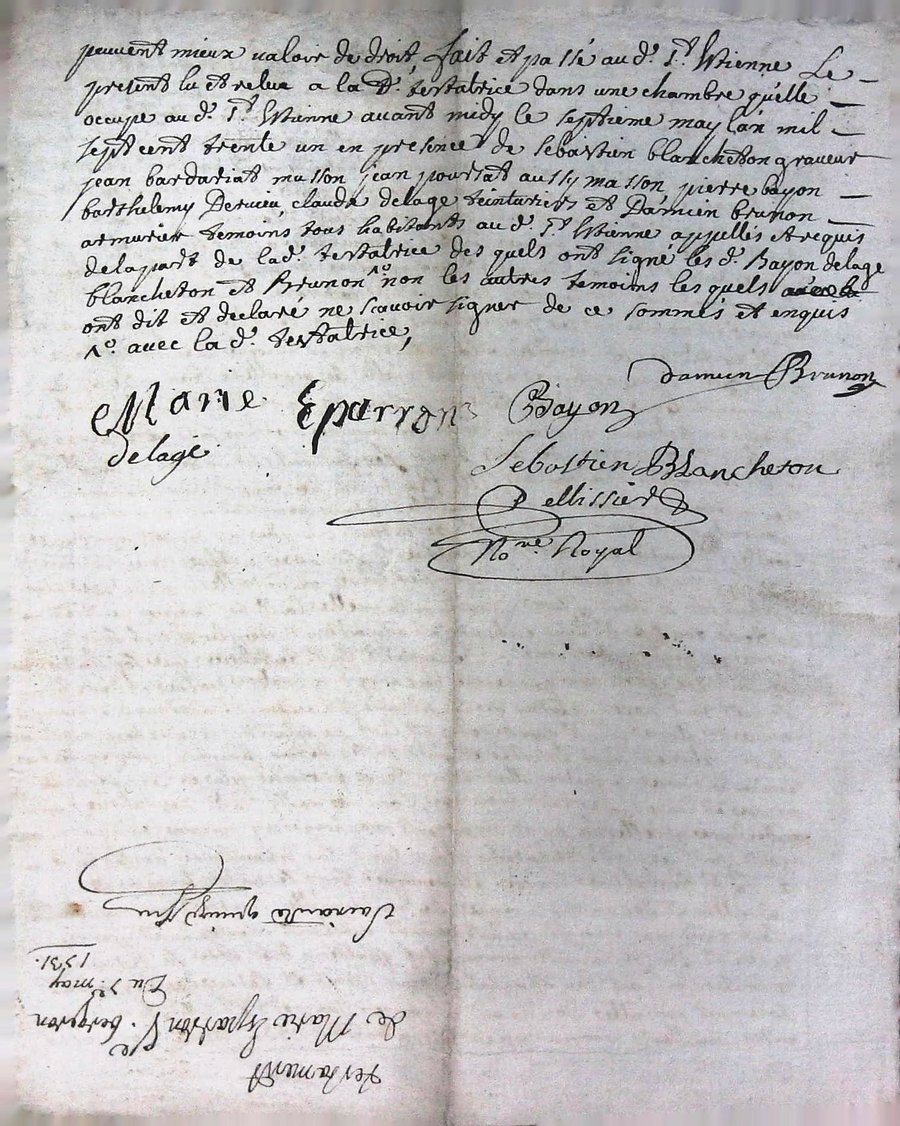 peuvent mieux valoir de droit, fait et passé au d.t S.t Etienne Le
present lu et relue a la D.e testatrice dans une chambre quelle
occupe au d.t S.t Etienne avant midy le septieme may lan mil
sept cent trente un en presence de sebastien blancheton graveur
jean bardariat masson jean pourrat aussy masson pierre bayon
barthelemy claude delage teinturier et Damien brunon
armurier temoins tous habitants au d.t S.t Etienne appellés et requis
de la part de lad.e testatrice des quels ont signé les d.t Bayon delage
blancheton et Brunon no non les autres temoins les quels
ont dit et declaré ne scavoir signer de ce sommés et enquis
no. avec la d.e testatrice,
damien Brunon
Marie Eparron Bayon
delage
Sebostien Blancheton
Pellissier
No.re Royal
testament
de Marie Eparron V.e bergeron
Du 7.e may
1731.